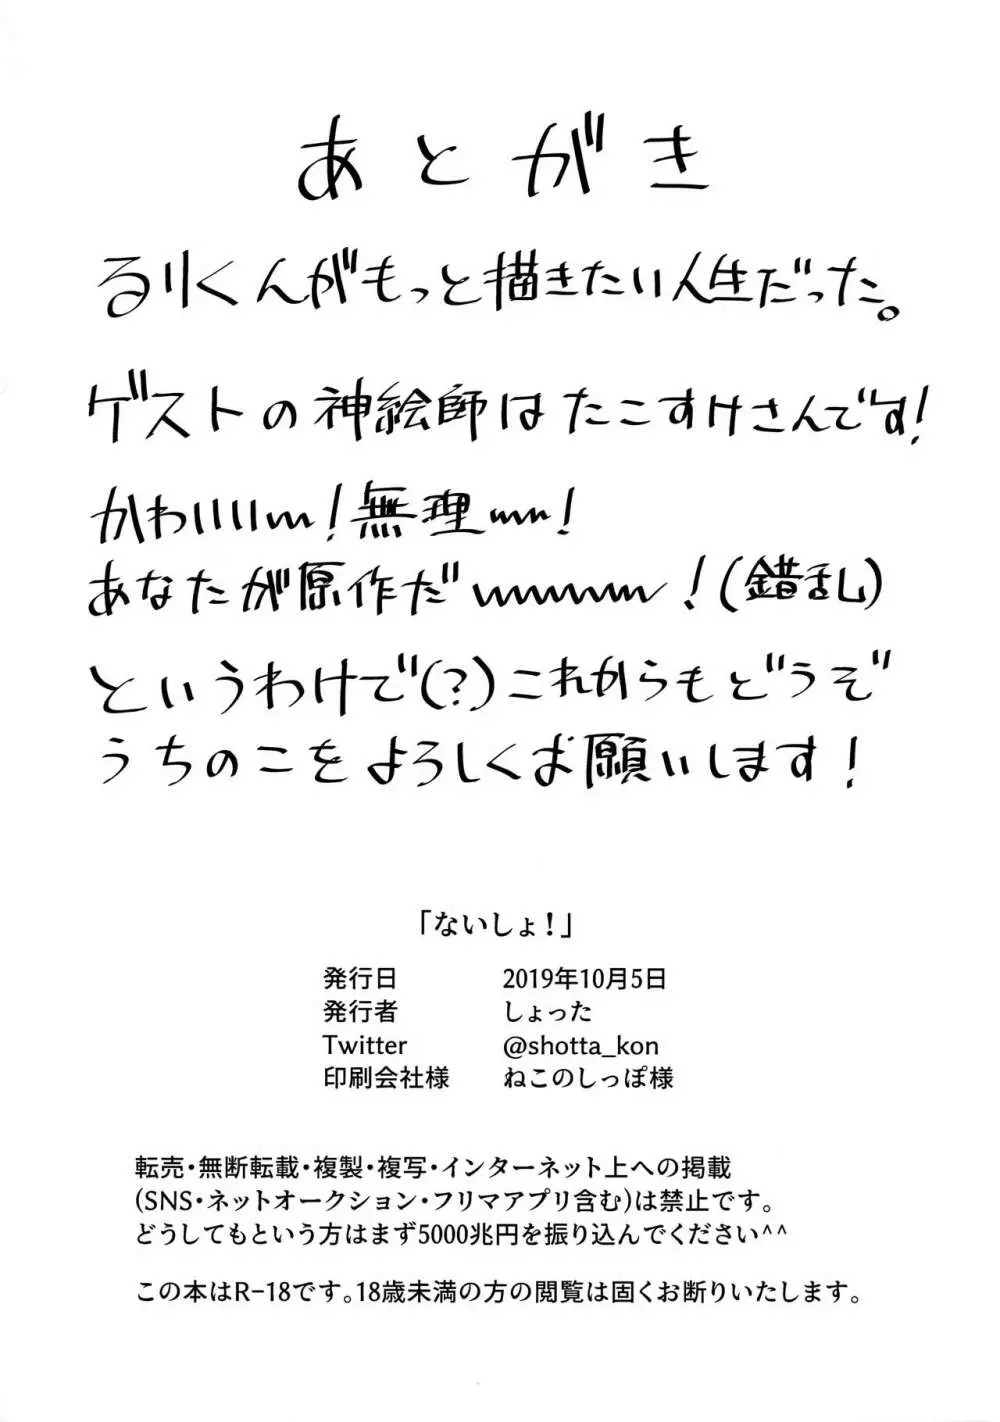 あとがき
るりくんがもっと描きたい人生だった。
ゲストの神絵師はたこすけさんです!
かわいい!無理!
あなたが原作だ!(錯乱)
というわけで(?)これからもどうぞ
うちのこをよろしくお願いします!
「ないしょ!」
発行日 2019年10月5日
発行者 しょった
Twitter @shotta_kon
印刷会社様 ねこのしっぽ様
転売・無断転載・複製・複写・インターネット上への掲載
(SNS・ネットオークション・フリマアプリ含む)は禁止です。
どうしてもという方はまず5000兆円を振り込んでください^^
この本はR-18です。18歳未満の方の閲覧は固くお断りいたします。